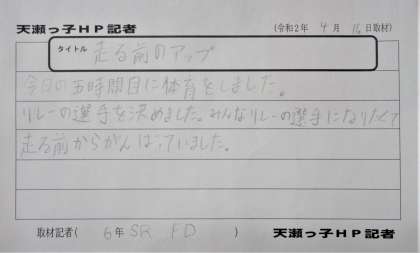 天瀬っ子HP記者 (令和2年 4月 16日取材)
タイトル 走る前のアップ
今日の五時間目に体育をしました。
リレーの選手を決めました。みんなリレーの選手になりたくて
走る前からがんばっていました。
取材記者( 6年 SR FD ) 天瀬っ子HP記者